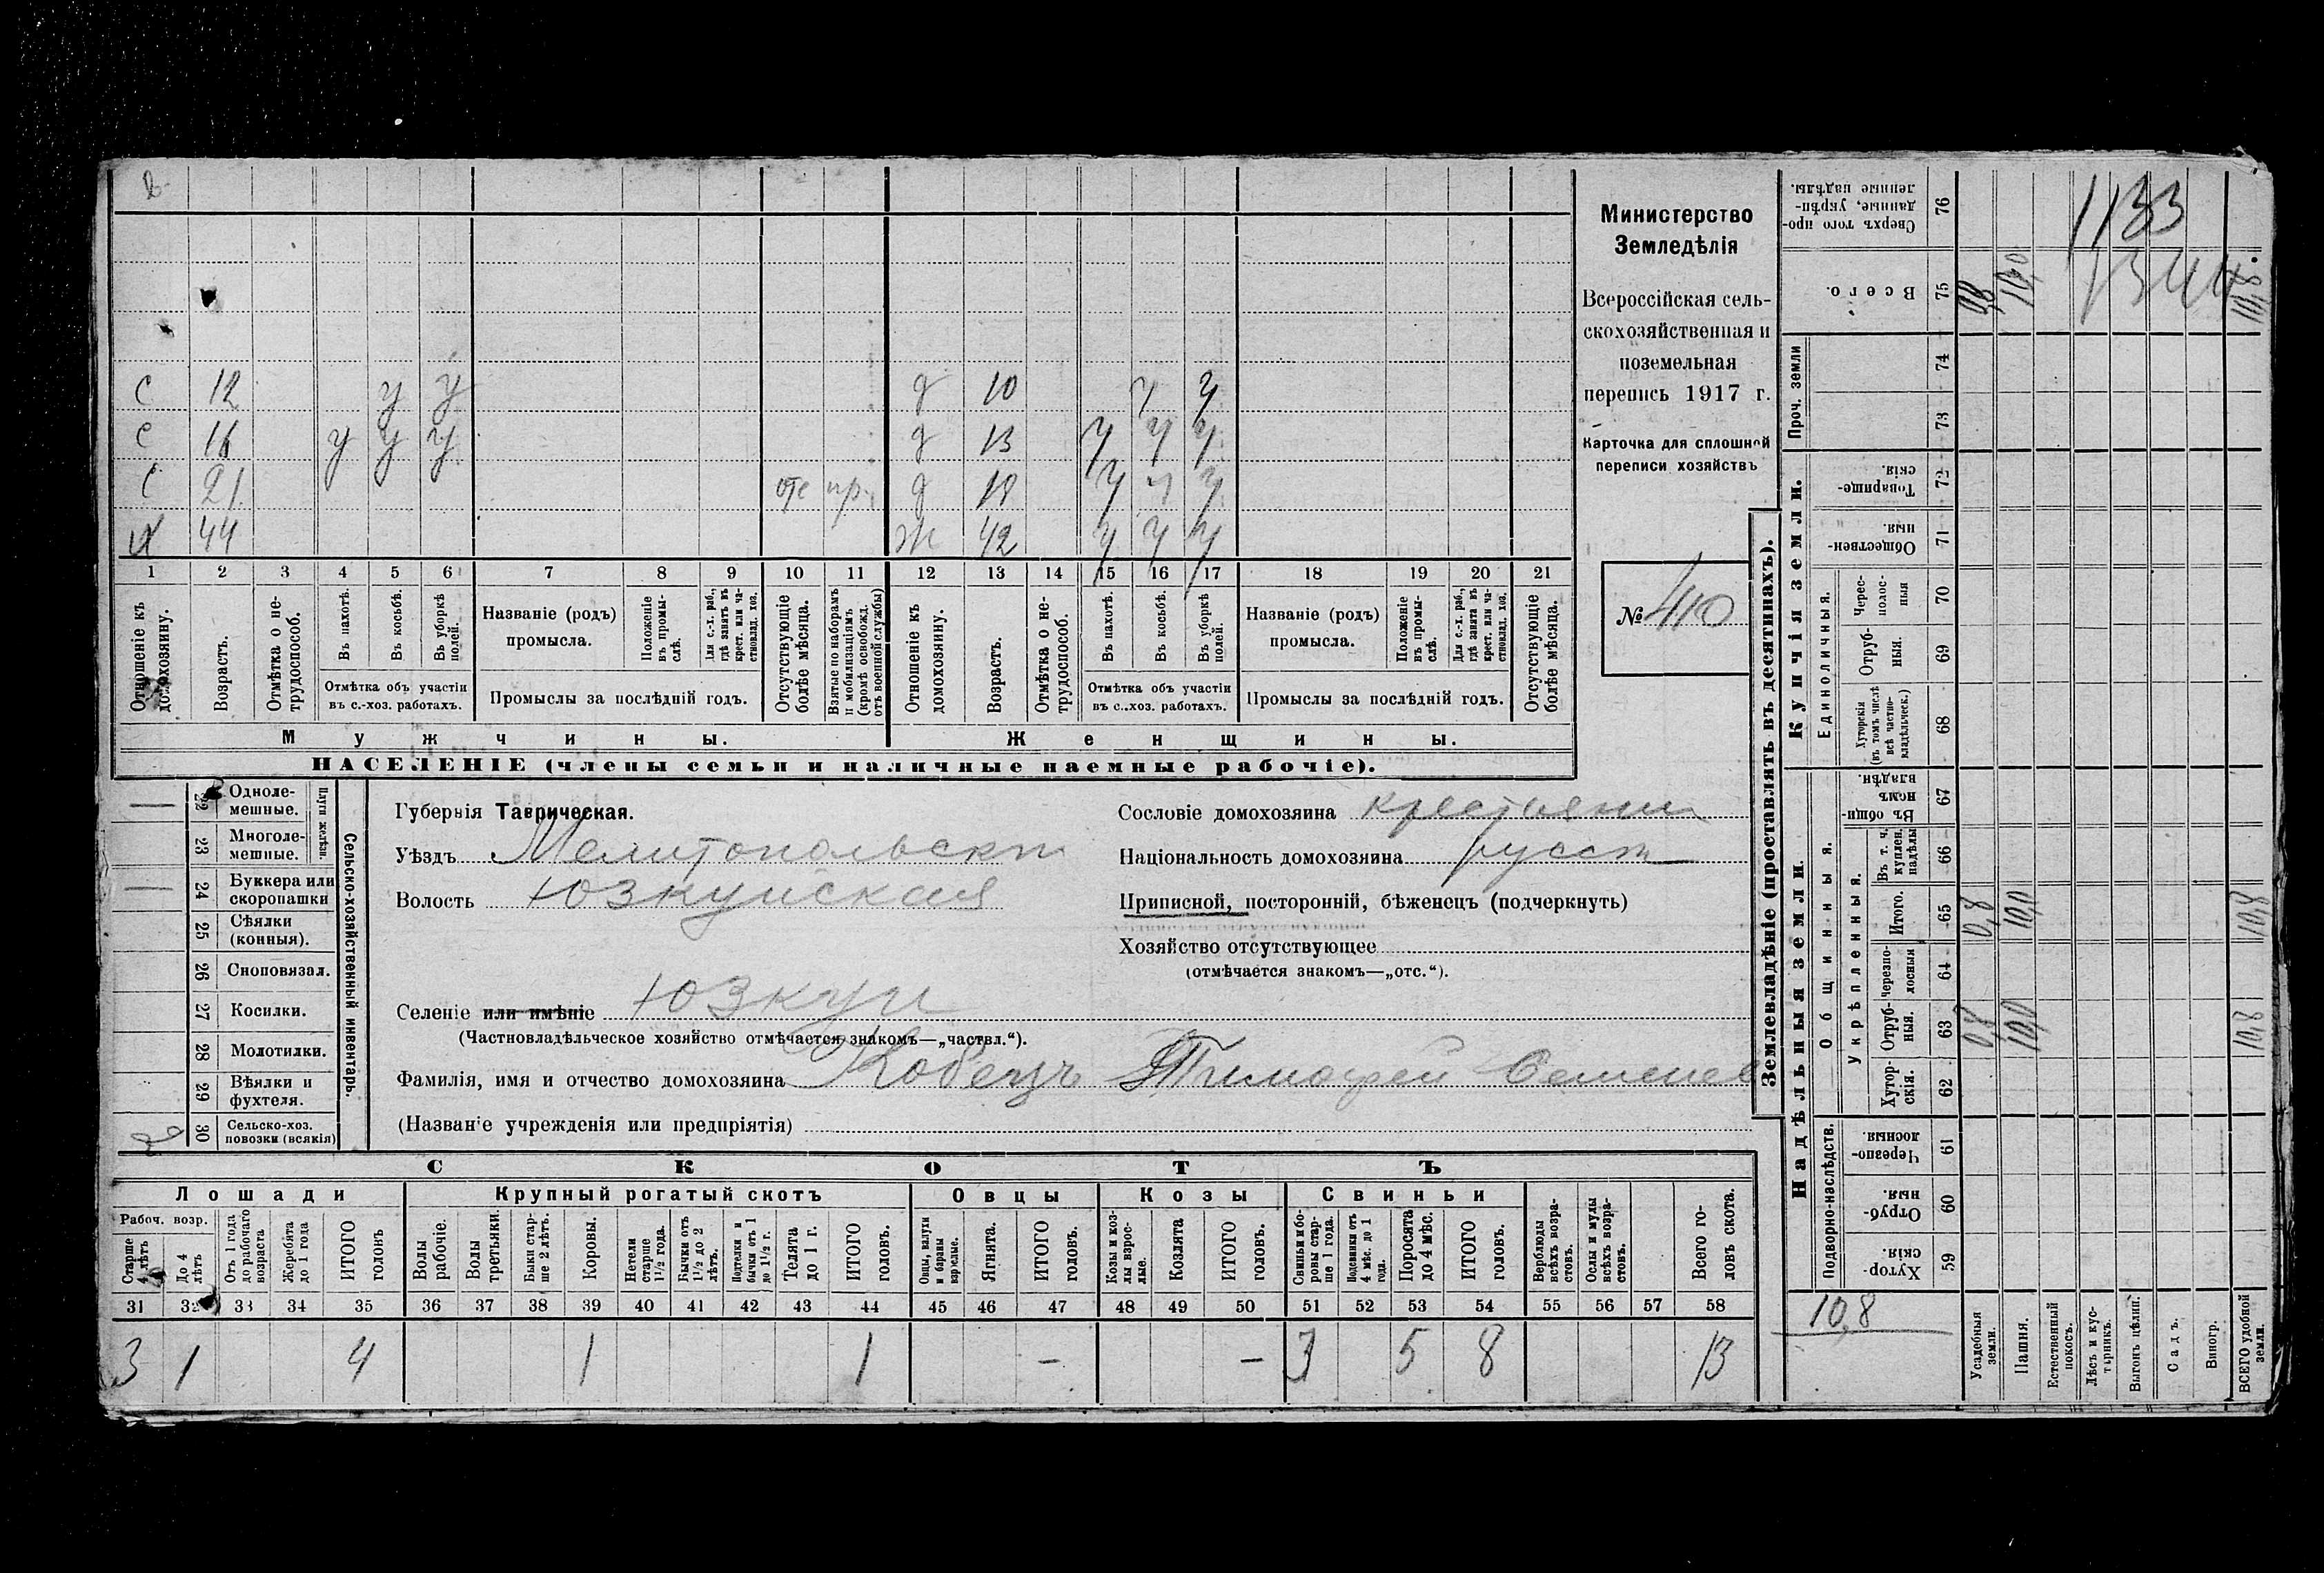 Министерство
Земледѣлія
Всероссійская сель-
скохозяйственная и
поземельная
перепись 1917 г.
Карточка для сплошной
переписи хозяйствъ
№ 410
с 12 у у д 10 у у
с 16 у у у д 13 у у у
с 21 отс пр. д 18 у у у
х 44 ж 42 у у у
1 2 3 4 5 6 7 8 9 10 11 12 13 14 15 16 17 18 19 20 21
Отношеніе къ домохозяину.
Возрастъ.
Отмѣтка о не-трудоспособ.
Въ пахотѣ.
Въ косьбѣ.
Въ уборкѣ полей.
Отмѣтка объ участіи въ с.-хоз. работахъ.
Названіе (родъ) промысла.
Положеніе въ промы-слѣ.
Для с.-х. раб., гдѣ занятъ въ крест. или ча-стновлад. хоз.
Промыслы за послѣдній годъ.
Отсутствующіе болѣе мѣсяца.
Взятые по наборамъ и мобилизаціямъ (кромѣ освобожд. отъ военной службы)
Отношеніе къ домохозяину.
Возрастъ.
Отмѣтка о не-трудоспособ.
Въ пахотѣ.
Въ косьбѣ.
Въ уборкѣ полей.
Отмѣтка объ участіи въ с.-хоз. работахъ.
Названіе (родъ) промысла.
Положеніе въ промы-слѣ.
Для с.-х. раб., гдѣ занятъ въ крест. или ча-стновлад. хоз.
Промыслы за послѣдній годъ.
Отсутствующіе болѣе мѣсяца.
Мужчины. Женщины.
НАСЕЛЕНІЕ (члены семьи и наличные наемные рабочіе).
Сельско-хозяйственный инвентарь.
Плуги желѣзн.
22 Однолемешные.
23 Многоле-мешные.
24 Буккера или скоропашки
25 Сѣялки (конныя).
26 Сноповязал.
27 Косилки.
28 Молотилки.
29 Вѣялки и фухтеля.
30 Сельско-хоз. повозки (всякія)
Губернія Таврическая.
Уѣздъ Мелитопольскій
Волость Юзкуйская
Селеніе или имѣніе Юзкуи
(Частновладѣльческое хозяйство отмѣчается знакомъ—„частвл.“).
Фамилія, имя и отчество домохозяина Кобецъ Тимофей Семенов
(Названіе учрежденія или предпріятія)
Сословіе домохозяина крестьянин
Національность домохозяина русск
Приписной, посторонній, бѣженецъ (подчеркнуть)
Хозяйство отсутствующее
(отмѣчается знакомъ—„отс.“).
СКОТЪ
Лошади Крупный рогатый скотъ Овцы Козы Свиньи
Рабоч. возр.
Старше 4 лѣтъ
До 4 лѣтъ
Отъ 1 года до рабочаго возраста
Жеребята до 1 года
ИТОГО головъ
Волы рабочіе.
Волы третьяки.
Быки стар-ше 2 лѣтъ.
Коровы.
Нетели старше 1½ года.
Бычки отъ 1½ до 2 лѣтъ.
Подтелки и бычки отъ 1 до 1½ г.
Телята до 1 г.
ИТОГО головъ.
Овцы, валухи и бараны взрослые.
Ягнята.
ИТОГО головъ.
Козы и коз-лы взрос-лые.
Козлята
ИТОГО головъ.
Свиньи и бо-ровы стар-ше 1 года.
Подсвинки отъ 4 мѣс. до 1 года.
Поросята до 4 мѣс.
ИТОГО головъ.
Верблюды всѣхъ возра-стовъ.
Ослы и мулы всѣхъ возра-стовъ.
Всего го-ловъ скота.
31 32 33 34 35 36 37 38 39 40 41 42 43 44 45 46 47 48 49 50 51 52 53 54 55 56 57 58
3 1 4 1 1 — — 3 5 8 13
Землевладѣніе (проставлять въ десятинахъ).
Сверхъ того про-данные, укрѣп-ленные надѣлы. 76 1133
Всего. 75 10,0 1344 10,8
Проч. земли 74 73
Купчія земли.
Товарище-скія. 72
Обществен-ныя. 71
Единоличныя.
Черес-полос-ныя 70
Отруб-ныя. 69
Хуторскія (въ томъ числѣ всѣ частно-владѣльческ.) 68
Надѣльныя земли.
Общинныя.
Въ общин-номъ владѣн. 67
Укрѣпленныя.
Въ т. ч. куплен. надѣлы 66
Итого. 65 0,8 10,0 10,8
Черезпо-лосныя 64
Отруб-ныя. 63 0,8 10,0 10,8
Хутор-скія. 62
Подворно-наслѣдств.
Черезпо-лосныя. 61
Отруб-ныя. 60
Хутор-скія. 59
10,8
Усадебныя земли.
Пашня.
Естественный покосъ.
Лѣсъ и кус-тарникъ.
Выгонъ цѣлин.
Садъ.
Виногр.
ВСЕГО удобной земли.